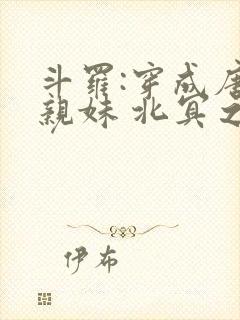 斗羅:穿成唐
親妹 北冥之
伊布